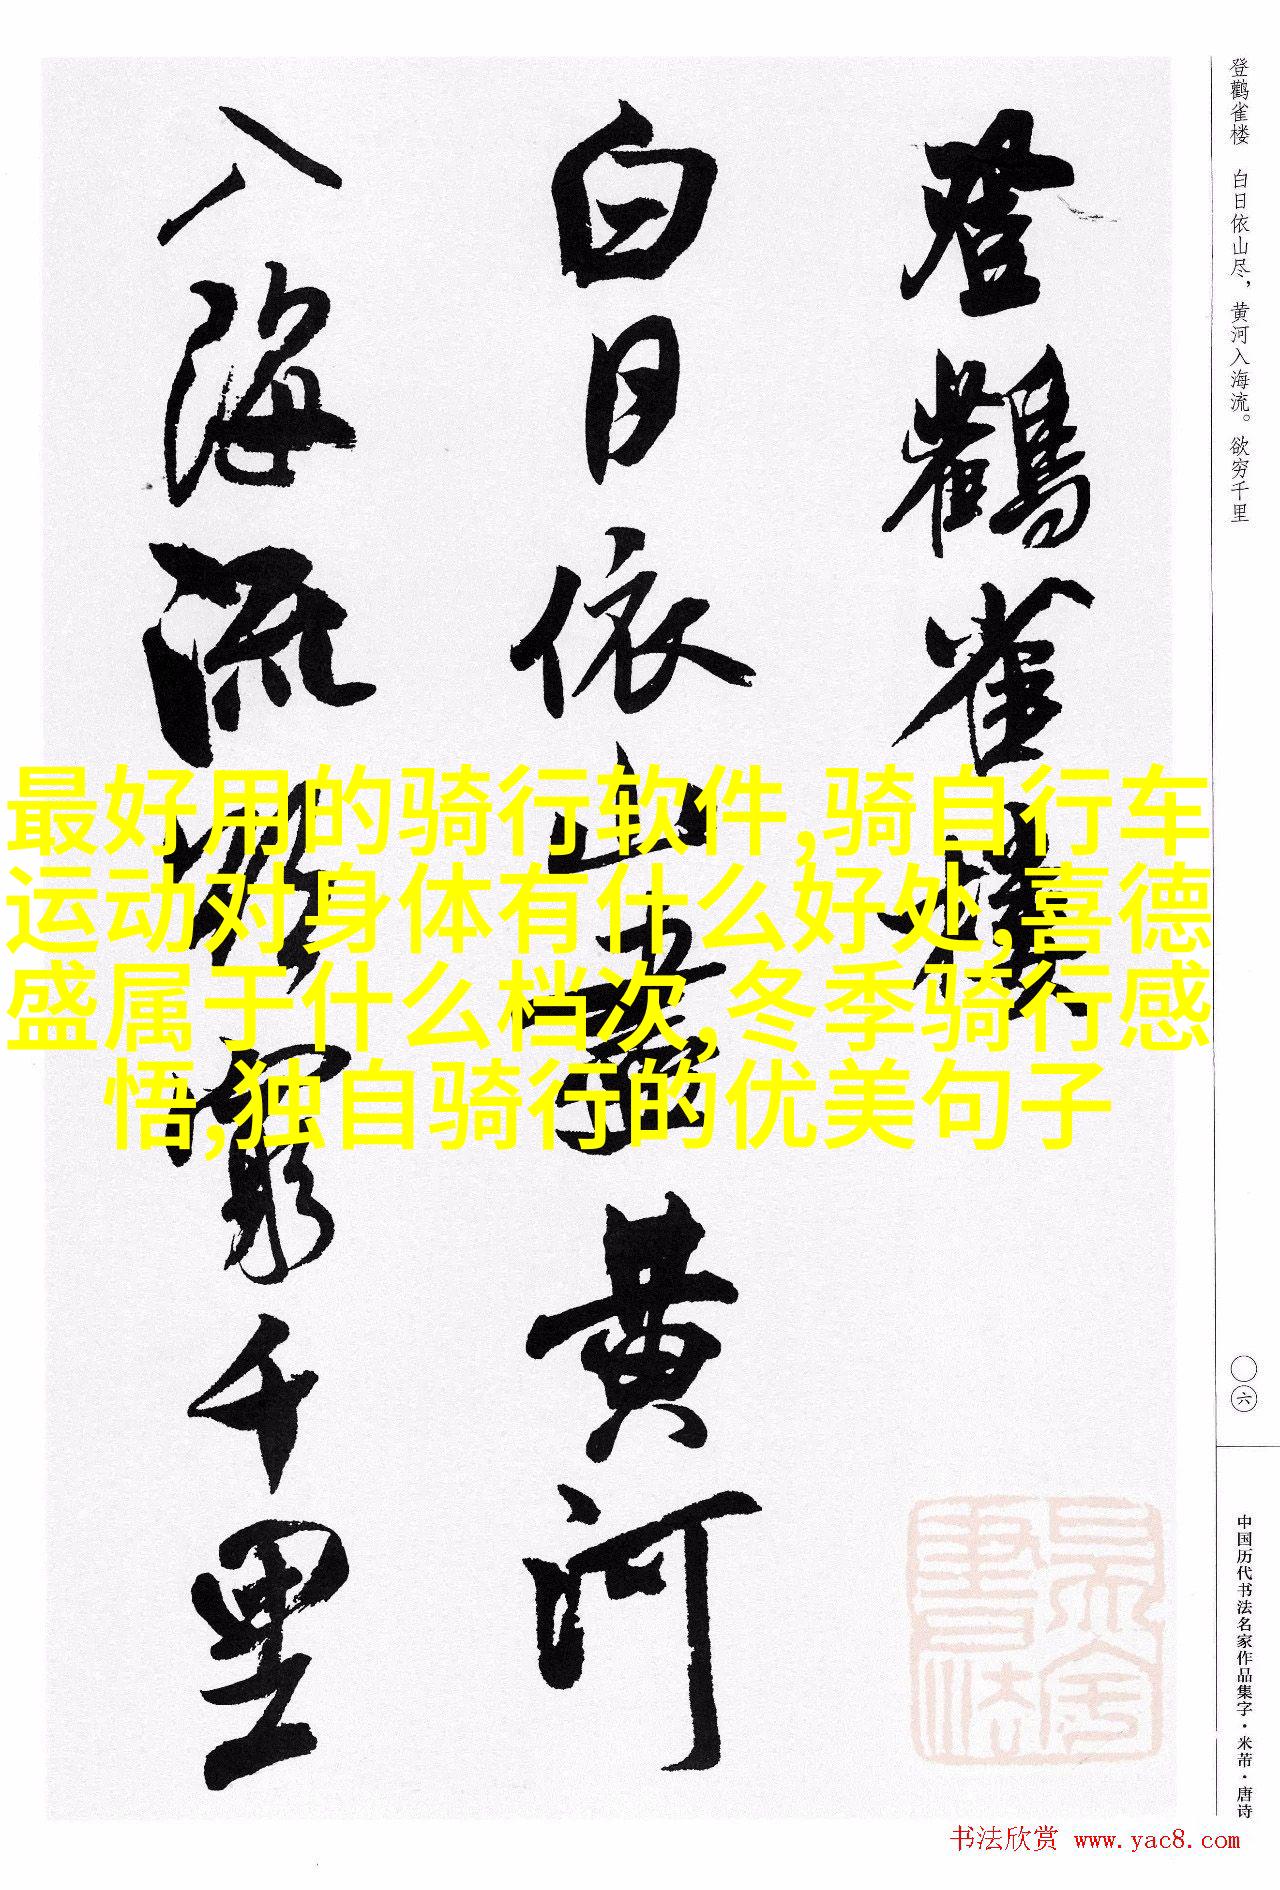 登鹳雀楼 白日依山尽，黄河入海流。欲穷千里
登鸛雀樓
白日依山盡黄河
入海流欲窮千里
最好用的骑行软件,骑自行车
运动对身体有什么好处,喜德
盛属于什么档次,冬季骑行感
悟,独自骑行的优美句子
〇六
中国历代书法名家作品集字·米芾·唐诗
书法欣赏 www.yac8.com